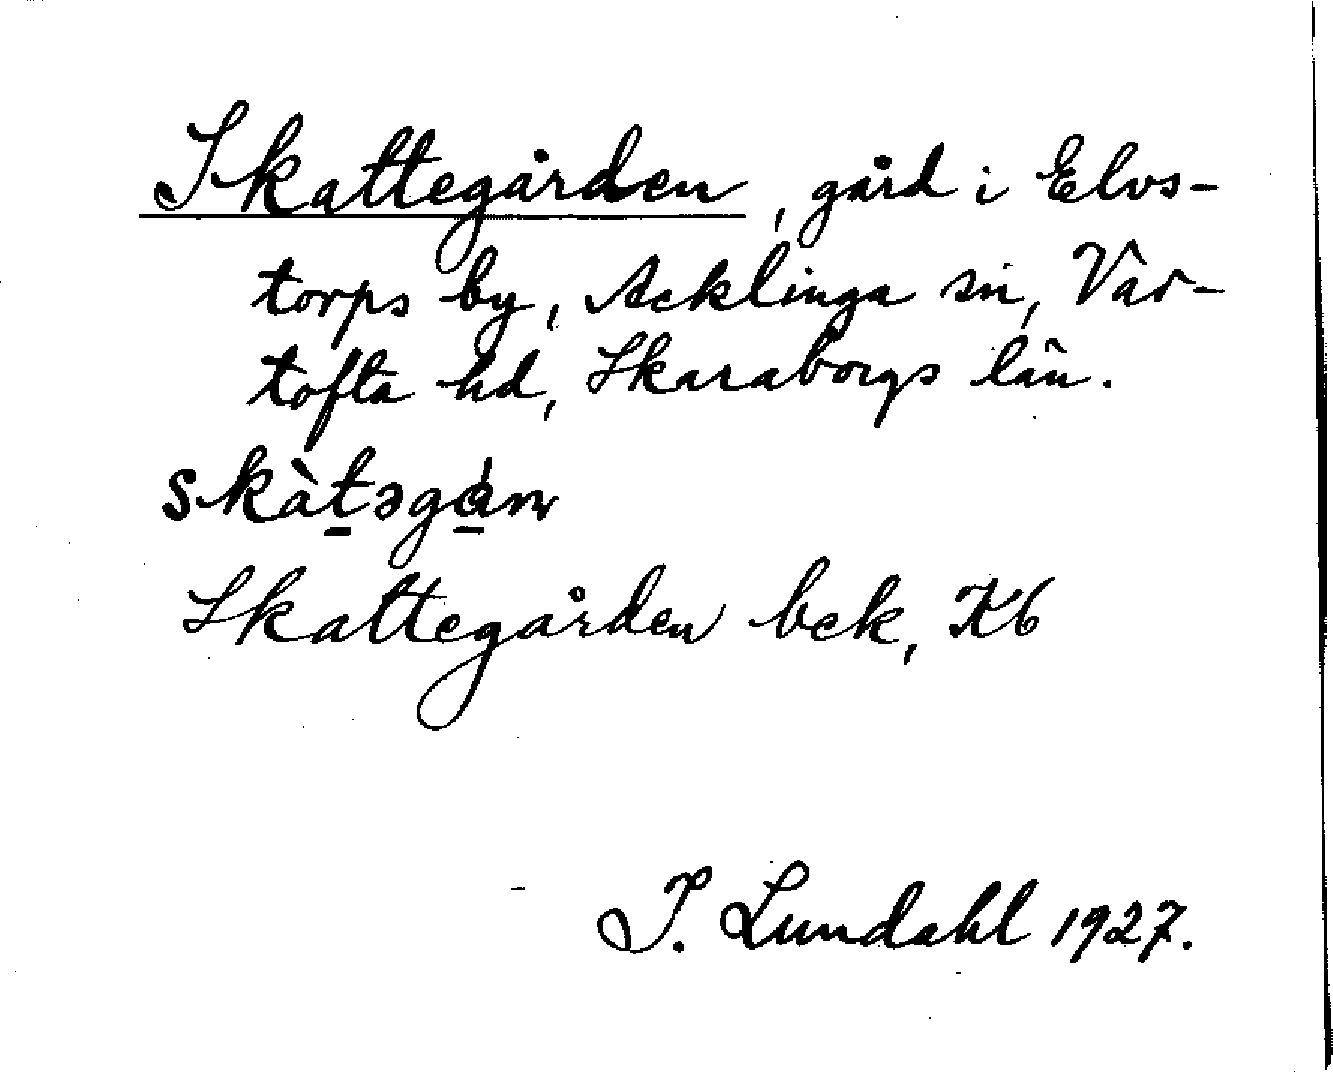 Skattegården, gård i Elvs-
torps by, Acklinga sn, Var-
tofta hd, Skaraborgs län.
skàt̲əgå̲n
Skattegården bek, Kb
I. Lundahl 1927.